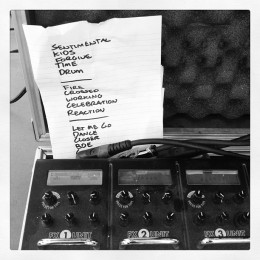 SENTIMENTAL
KIDS
FORGIVE
TIME
DRUM
FIRE
CROSSED
WORKING
CELEBRATION
REACTION
LET ME GO
DANCE
CLOSER
BOE
FX 1 UNIT
FX 2 UNIT
FX 3 UNIT